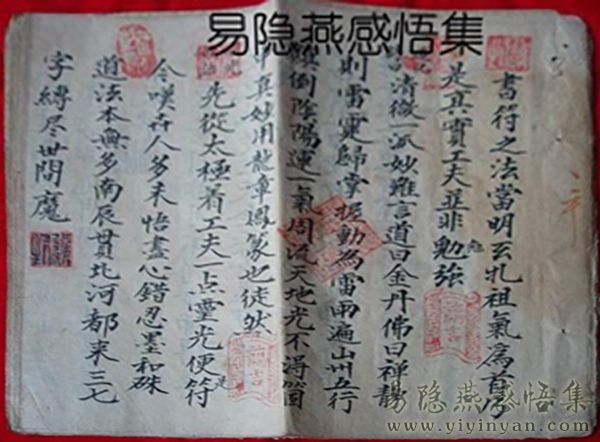 易隐燕感悟集
書符之法當明玄牝祖氣為首乃
是真實工夫並非勉強
清微一派妙難言道曰金丹佛曰禪靜
則雷霆歸掌握動為雷雨遍山州五行
顛倒陰陽運一氣周流天地光不得箇
中真妙用龍章鳳篆也徒然
先從太極着工夫一点靈光便是符
今嘆世人多未悟盡心錯忍墨和硃
道法本無多南辰貫北河都來三七
字縛尽世間魔
易隐燕感悟集
www.yiyinyan.com